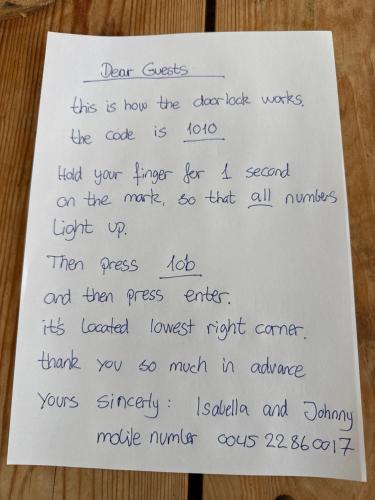 Dear Guests
this is how the doorlock works.
the code is 1010
Hold your finger for 1 second
on the mark, so that all numbers
Light up.
Then press 1010
and then press enter.
it's Located lowest right corner.
thank you so much in advance
Yours sincerly: Isabella and Johnny
mobile number 0045 22860017